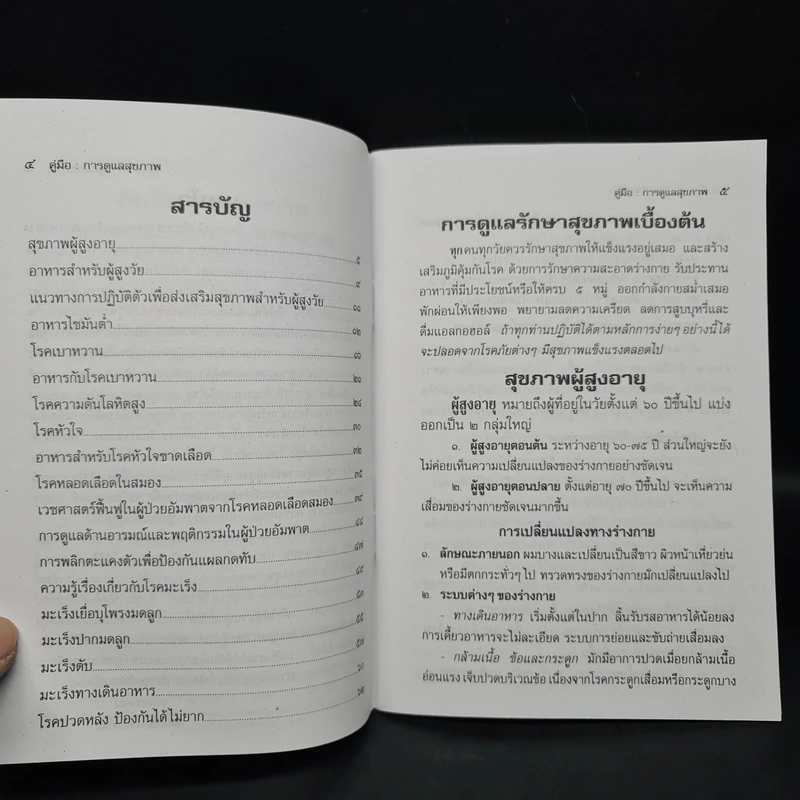 ๔ คู่มือ : การดูแลสุขภาพ
สารบัญ
สุขภาพผู้สูงอายุ ๕
อาหารสำหรับผู้สูงวัย ๙
แนวทางการปฏิบัติตัวเพื่อส่งเสริมสุขภาพสำหรับผู้สูงวัย ๑๑
อาหารไขมันต่ำ ๑๒
โรคเบาหวาน ๑๖
อาหารกับโรคเบาหวาน ๒๑
โรคความดันโลหิตสูง ๒๔
โรคหัวใจ ๓๐
อาหารสำหรับโรคหัวใจขาดเลือด ๓๒
โรคหลอดเลือดในสมอง ๓๕
เวชศาสตร์ฟื้นฟูในผู้ป่วยอัมพาตจากโรคหลอดเลือดสมอง ๓๙
การดูแลด้านอารมณ์และพฤติกรรมในผู้ป่วยอัมพาต ๔๔
การพลิกตะแคงตัวเพื่อป้องกันแผลกดทับ ๔๗
ความรู้เรื่องเกี่ยวกับโรคมะเร็ง ๔๙
มะเร็งเยื่อบุโพรงมดลูก ๕๓
มะเร็งปากมดลูก ๕๕
มะเร็งตับ ๕๗
มะเร็งทางเดินอาหาร ๖๐
โรคปวดหลัง ป้องกันได้ไม่ยาก ๖๒
คู่มือ : การดูแลสุขภาพ ๕
การดูแลรักษาสุขภาพเบื้องต้น
ทุกคนทุกวัยควรรักษาสุขภาพให้แข็งแรงอยู่เสมอ และสร้าง
เสริมภูมิคุ้มกันโรค ด้วยการรักษาความสะอาดร่างกาย รับประทาน
อาหารที่มีประโยชน์หรือให้ครบ ๕ หมู่ ออกกำลังกายสม่ำเสมอ
พักผ่อนให้เพียงพอ พยายามลดความเครียด ลดการสูบบุหรี่และ
ดื่มแอลกอฮอล์ ถ้าทุกท่านปฏิบัติได้ตามหลักการง่ายๆ อย่างนี้ได้
จะปลอดจากโรคภัยต่างๆ มีสุขภาพแข็งแรงตลอดไป
สุขภาพผู้สูงอายุ
ผู้สูงอายุ หมายถึงผู้ที่อยู่ในวัยตั้งแต่ ๖๐ ปีขึ้นไป แบ่ง
ออกเป็น ๒ กลุ่มใหญ่
๑. ผู้สูงอายุตอนต้น ระหว่างอายุ ๖๐-๗๕ ปี ส่วนใหญ่จะยัง
ไม่ค่อยเห็นความเปลี่ยนแปลงของร่างกายอย่างชัดเจน
๒. ผู้สูงอายุตอนปลาย ตั้งแต่อายุ ๗๐ ปีขึ้นไป จะเห็นความ
เสื่อมของร่างกายชัดเจนมากขึ้น
การเปลี่ยนแปลงทางร่างกาย
๑. ลักษณะภายนอก ผมบางและเปลี่ยนเป็นสีขาว ผิวหน้าเหี่ยวย่น
หรือมีตกกระทั่วๆ ไป ทรวดทรงของร่างกายมักเปลี่ยนแปลงไป
๒. ระบบต่างๆ ของร่างกาย
- ทางเดินอาหาร เริ่มตั้งแต่ในปาก ลิ้นรับรสอาหารได้น้อยลง
การเคี้ยวอาหารจะไม่ละเอียด ระบบการย่อยและขับถ่ายเสื่อมลง
- กล้ามเนื้อ ข้อและกระดูก มักมีอาการปวดเมื่อยกล้ามเนื้อ
อ่อนแรง เจ็บปวดบริเวณข้อ เนื่องจากโรคกระดูกเสื่อมหรือกระดูกบาง